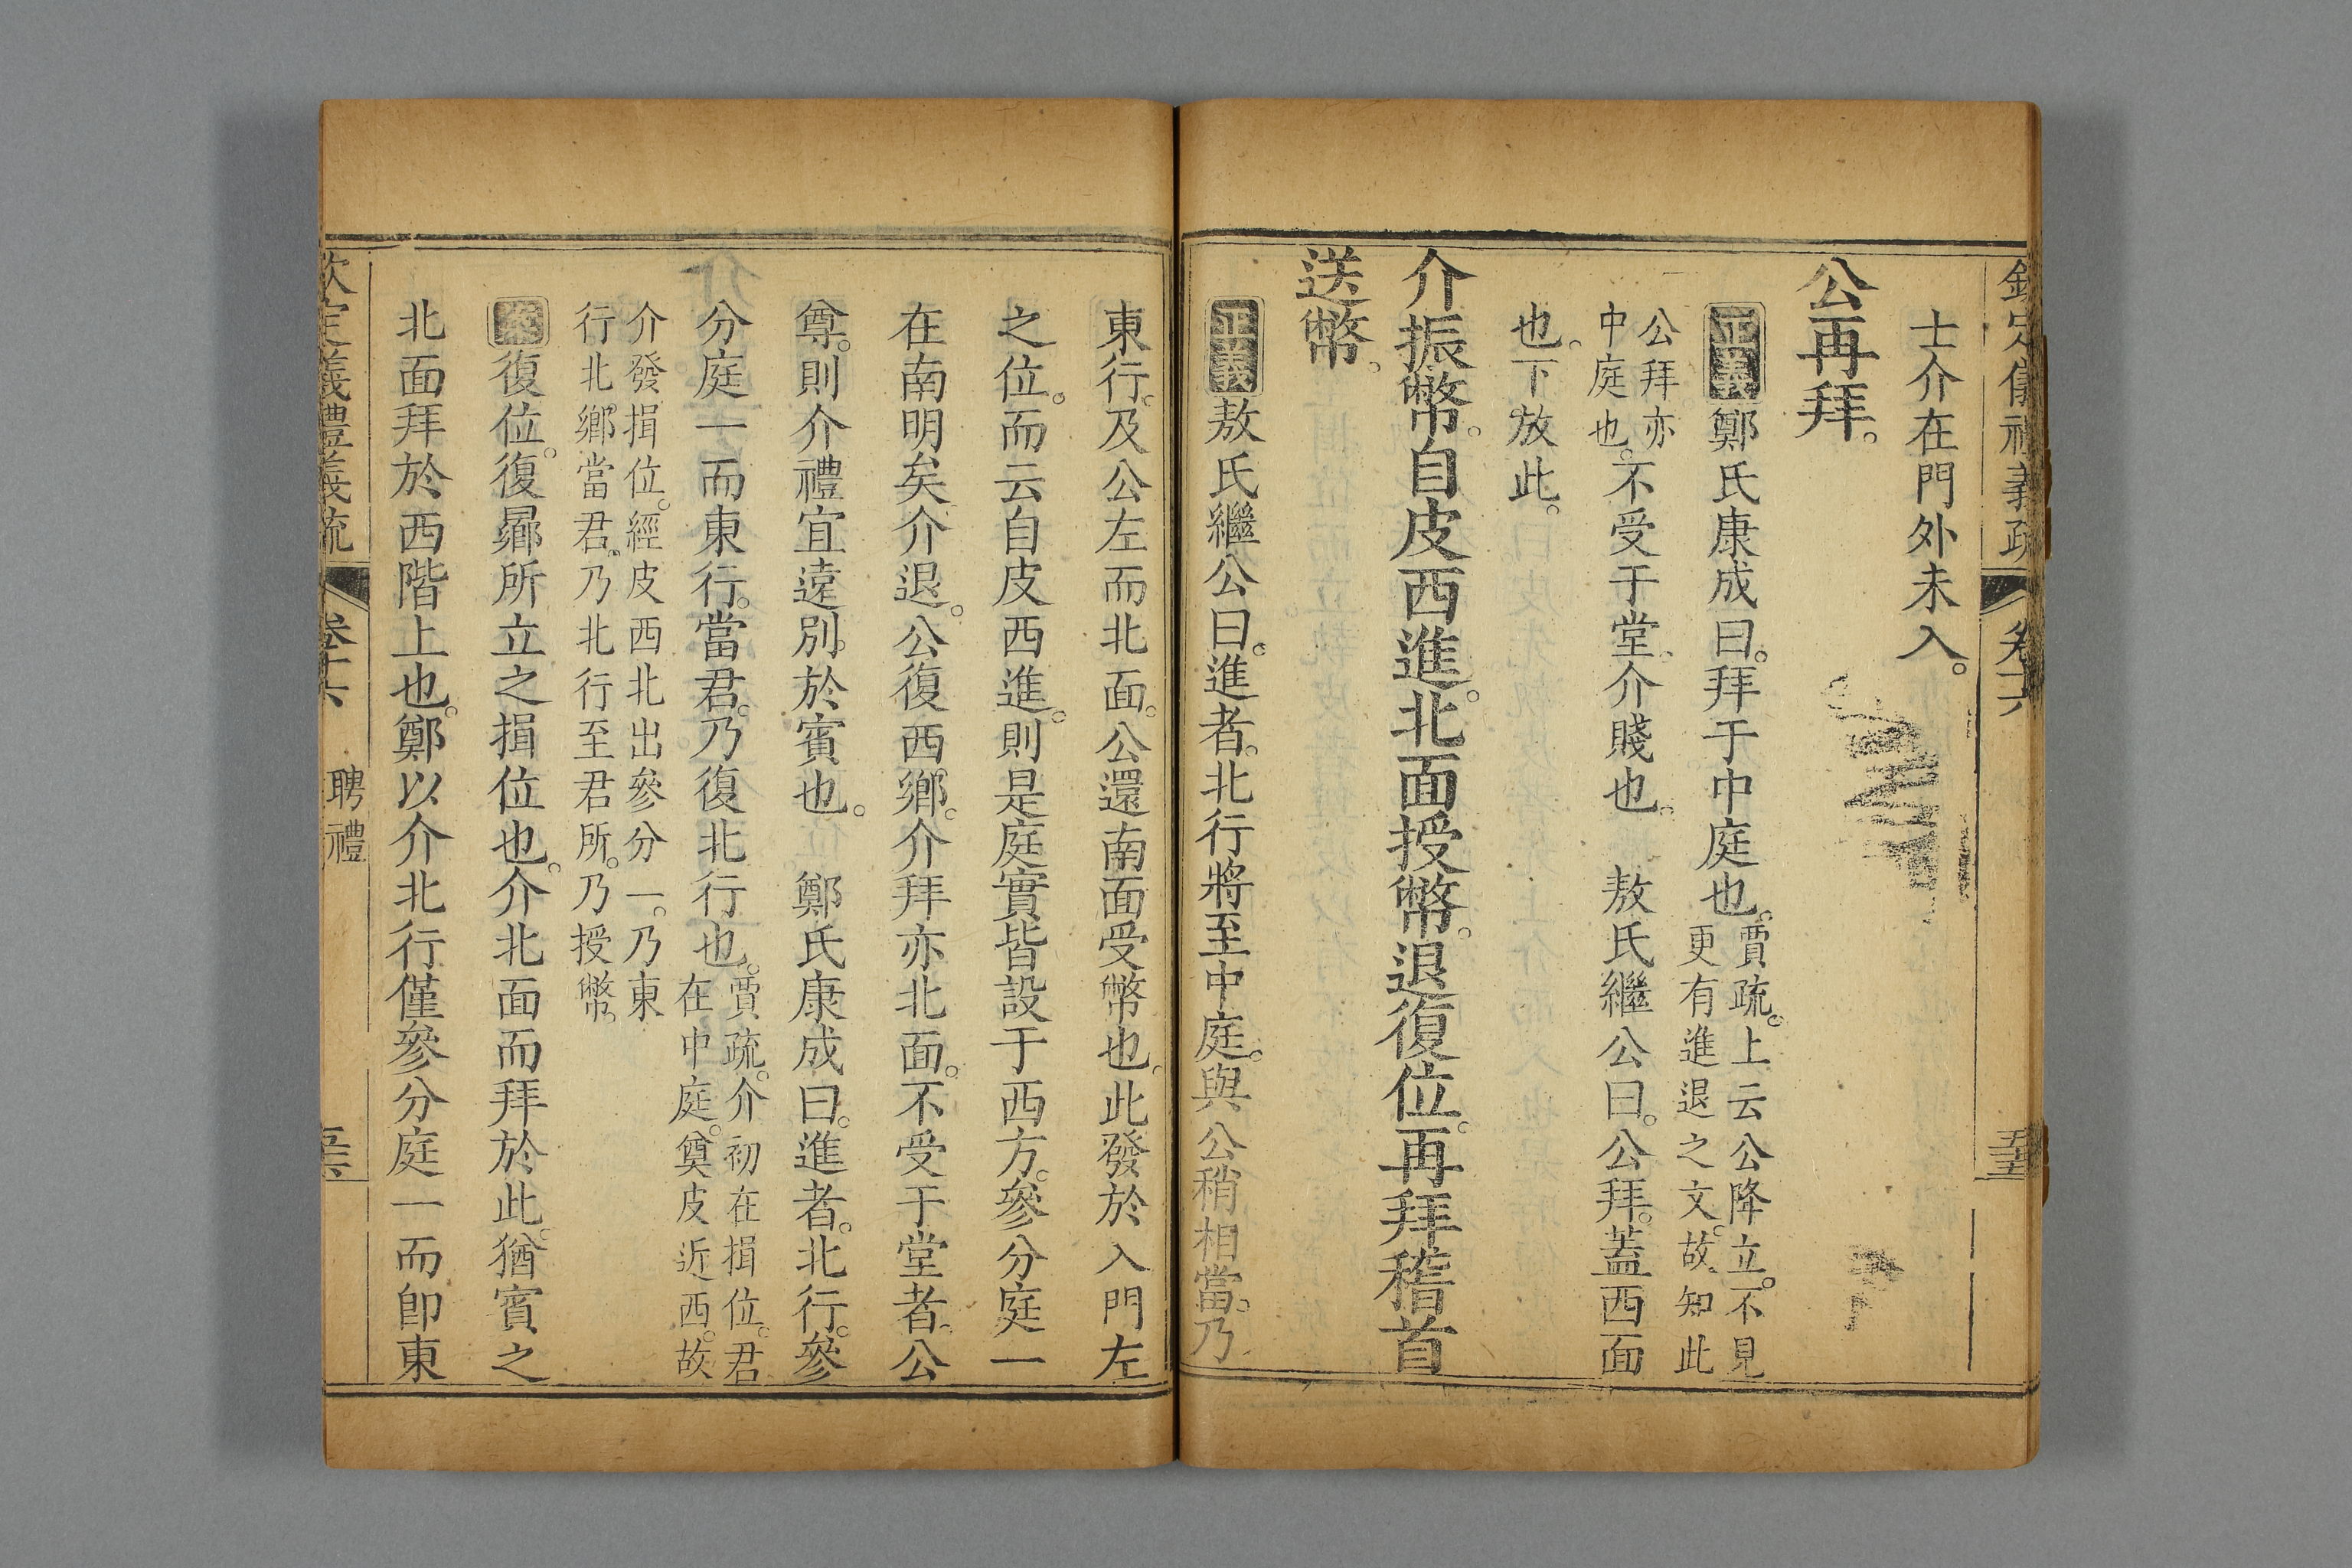 欽定儀禮義疏 卷十六
士介在門外未入。
公再拜。
正義鄭氏康成曰。拜于中庭也。賈疏。上云公降立。不見更有進退之文。故知此
公拜亦中庭也。不受于堂。介賤也。 敖氏繼公曰。公拜。蓋西面
也。下放此。
介振幣。自皮西進。北面授幣。退復位。再拜稽首
送幣。
正義敖氏繼公曰。進者。北行將至中庭。與公稍相當。乃
東行。及公左而北面。公還南面受幣也。此發於入門左
之位。而云自皮西進。則是庭實皆設于西方。參分庭一
在南明矣。介退。公復西鄉。介拜亦北面。不受于堂者。公
尊。則介禮宜遠別於賓也。 鄭氏康成曰。進者。北行。參
分庭一而東行。當君。乃復北行也。賈疏。介初在揖位。君在中庭。奠皮近西。故
介發揖位。經皮西北出參分一。乃東行北。鄉當君。乃北行至君所。乃授幣。
案復位。復曏所立之揖位也。介北面而拜於此。猶賓之
北面拜於西階上也。鄭以介北行僅參分庭一而卽東
欽定義禮義疏 卷十六 聘禮